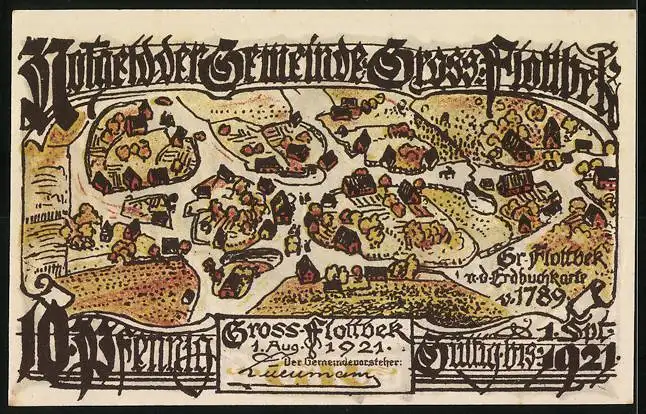 Notgeld der Gemeinde Gross-Flottbek
Gr. Flottbek
n.d. Erdbuchkarte
v. 1789
10 Pfennig
Gross-Flottbek
1. Aug. 1921.
Der Gemeindevorsteher:
Gültig bis: 1. Spt.
1921.